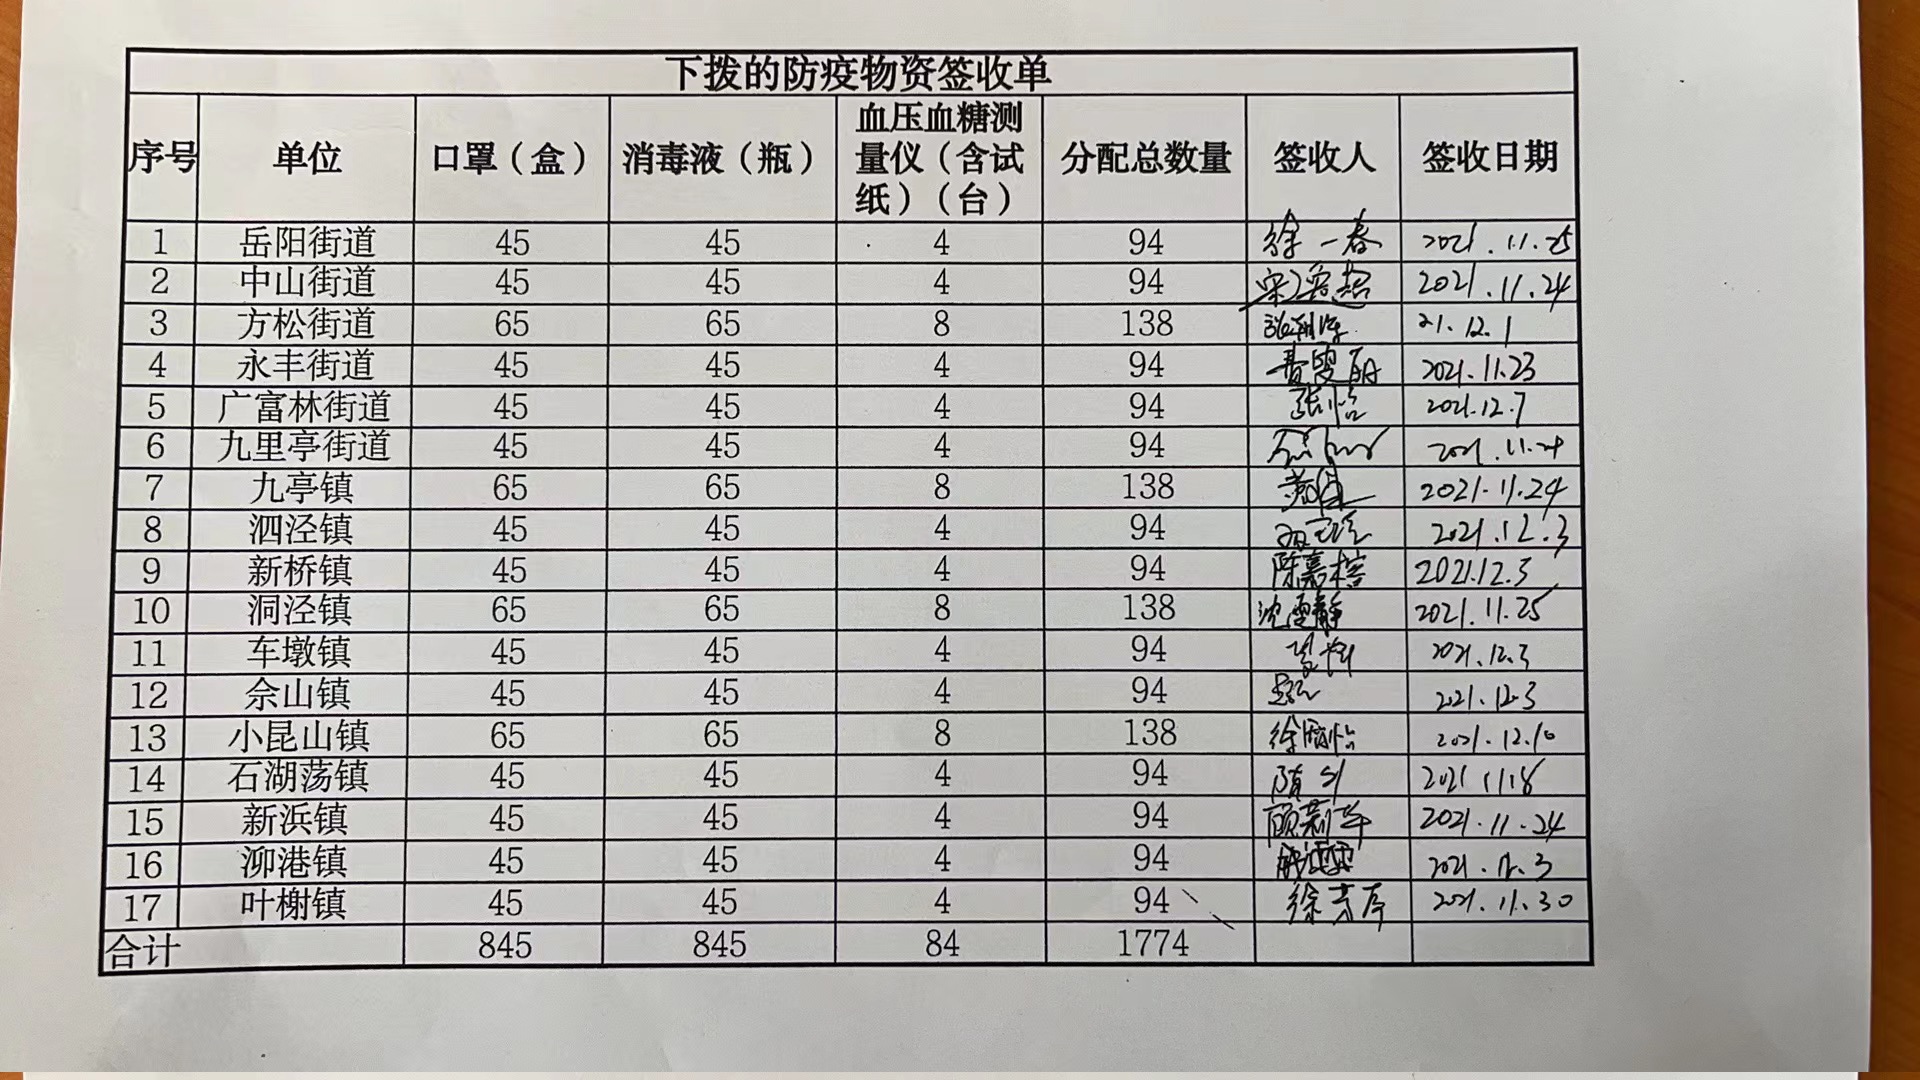 下拨的防疫物资签收单
序号 单位 口罩（盒） 消毒液（瓶） 血压血糖测量仪（含试纸）（台） 分配总数量 签收人 签收日期
1 岳阳街道 45 45 4 94 徐一春 2021.11.25
2 中山街道 45 45 4 94 2021.11.24
3 方松街道 65 65 8 138 21.12.1
4 永丰街道 45 45 4 94 2021.11.23
5 广富林街道 45 45 4 94 张怡 2021.12.7
6 九里亭街道 45 45 4 94 2021.11.24
7 九亭镇 65 65 8 138 2021.11.24
8 泗泾镇 45 45 4 94 2021.12.3
9 新桥镇 45 45 4 94 陈嘉榕 2021.12.3
10 洞泾镇 65 65 8 138 2021.11.25
11 车墩镇 45 45 4 94 2021.12.3
12 佘山镇 45 45 4 94 2021.12.3
13 小昆山镇 65 65 8 138 2021.12.10
14 石湖荡镇 45 45 4 94 2021 11 18
15 新浜镇 45 45 4 94 顾莉华 2021.11.24
16 泖港镇 45 45 4 94
17 叶榭镇 45 45 4 94 2021.11.30
合计 845 845 84 1774